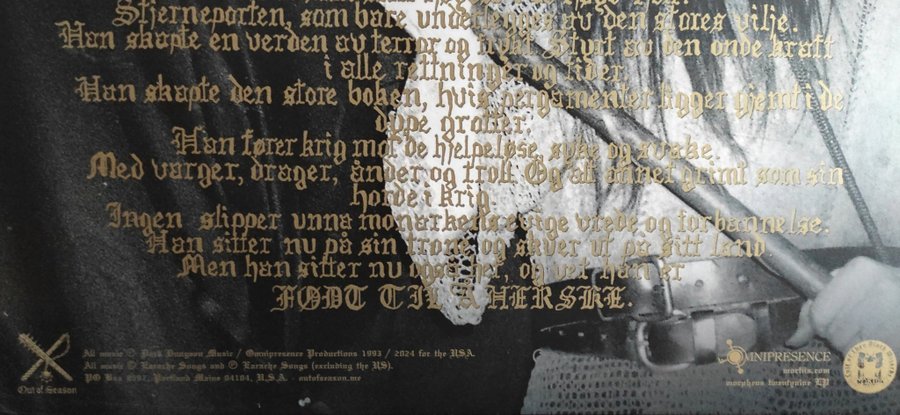 Stjerneporten, som bare underlegges av den stores vilje.
Han skapte en verden av terror og frykt. Styrt av den onde kraft
i alle rettninger og tider.
Han skapte den store boken, hvis pergamenter ligger gjemt i de
dype grotter.
Han fører krig mot de hjelpeløse, syke og svake.
Med varger, drager, ånder og troll. Og alt annet grimt som sin
horde i krig.
Ingen slipper unna monarkens evige vrede og forbannelse.
Han sitter nu på sin trone og skuer ut på sitt land.
Men han sitter nu også her, og vet han er
FØDT TIL Å HERSKE.
Out of Season
All music © Dark Dungeon Music / Omnipresence Productions 1993 / 2024 for the USA.
All music © Earache Songs and ℗ Earache Songs (excluding the US).
PO Box Portland Maine 04104, U.S.A. - outofseason.me
OMNIPRESENCE
mortiis.com
morpheus twentynine LP